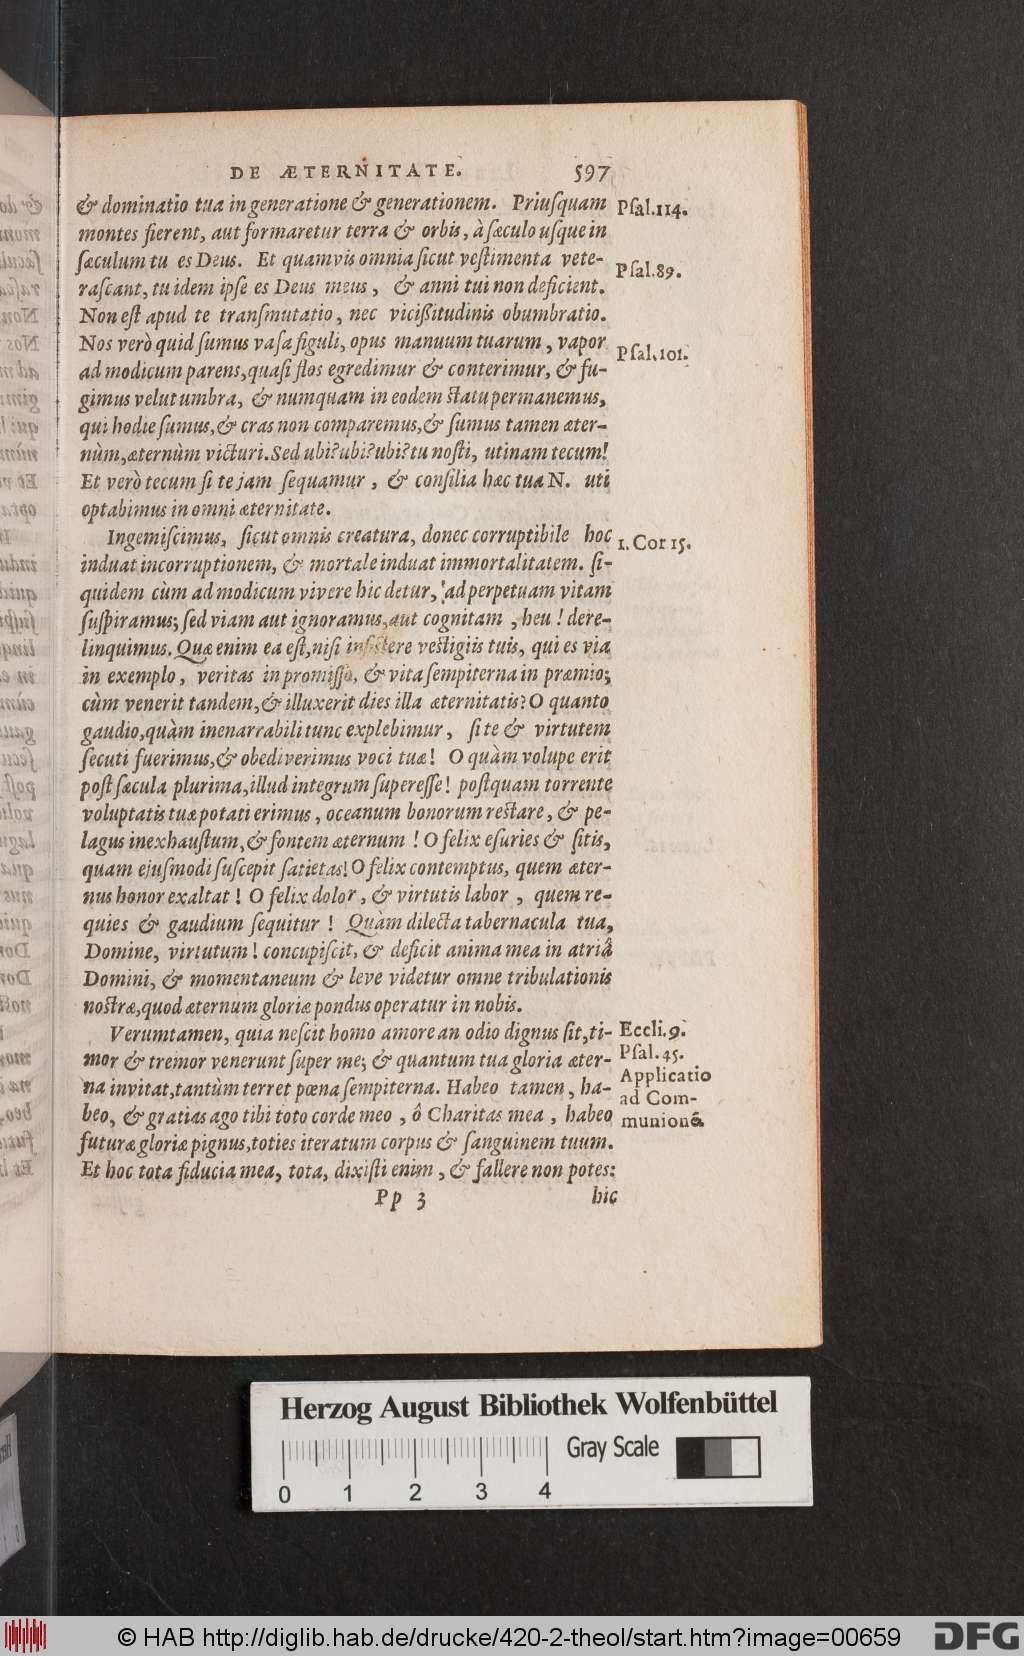 DE ÆTERNITATE. 597
& dominatio tua in generatione & generationem. Priuſquam
Pſal.114.
montes fierent, aut formaretur terra & orbis, à ſæculo uſque in
ſæculum tu es Deus. Et quamvis omnia ſicut veſtimenta vete-
Pſal.89.
raſcant, tu idem ipſe es Deus meus, & anni tui non deficient.
Non eſt apud te tranſmutatio, nec viciſſitudinis obumbratio.
Nos verò quid ſumus vaſa figuli, opus manuum tuarum, vapor
Pſal.101.
ad modicum parens, quaſi flos egredimur & conterimur, & fu-
gimus velut umbra, & numquam in eodem ſtatu permanemus,
qui hodie ſumus, & cras non comparemus, & ſumus tamen æter-
nùm, æternùm victuri. Sed ubi? ubi? ubi? tu noſti, utinam tecum!
Et verò tecum ſi te jam ſequamur, & conſilia hæc tua N. uti
optabimus in omni æternitate.
Ingemiſcimus, ſicut omnis creatura, donec corruptibile hoc
1. Cor 15.
induat incorruptionem, & mortale induat immortalitatem. ſi-
quidem cùm ad modicum vivere hic detur, ad perpetuam vitam
ſuſpiramus; ſed viam aut ignoramus, aut cognitam, heu! dere-
linquimus. Quæ enim ea eſt, niſi inſiſtere veſtigiis tuis, qui es via
in exemplo, veritas in promiſſo, & vita ſempiterna in præmio;
cùm venerit tandem, & illuxerit dies illa æternitatis? O quanto
gaudio, quàm inenarrabili tunc explebimur, ſi te & virtutem
ſecuti fuerimus, & obediverimus voci tuæ! O quàm volupe erit
poſt ſæcula plurima, illud integrum ſupereſſe! poſtquam torrente
voluptatis tuæ potati erimus, oceanum bonorum reſtare, & pe-
lagus inexhauſtum, & fontem æternum! O felix eſuries & ſitis,
quam ejuſmodi ſuſcepit ſatietas! O felix contemptus, quem æter-
nus honor exaltat! O felix dolor, & virtutis labor, quem re-
quies & gaudium ſequitur! Quàm dilecta tabernacula tua,
Domine, virtutum! concupiſcit, & deficit anima mea in atriâ
Domini, & momentaneum & leve videtur omne tribulationis
noſtræ, quod æternum gloriæ pondus operatur in nobis.
Verumtamen, quia neſcit homo amore an odio dignus ſit, ti-
Eccli.9.
mor & tremor venerunt ſuper me; & quantum tua gloria æter-
Pſal.45.
na invitat, tantùm terret pœna ſempiterna. Habeo tamen, ha-
Applicatio
beo, & gratias ago tibi toto corde meo, ô Charitas mea, habeo
ad Com-
munionẽ.
futuræ gloriæ pignus, toties iteratum corpus & ſanguinem tuum.
Et hoc tota fiducia mea, tota, dixiſti enim, & fallere non potes:
Pp 3 hic
Herzog August Bibliothek Wolfenbüttel
Gray Scale
0 1 2 3 4
© HAB http://diglib.hab.de/drucke/420-2-theol/start.htm?image=00659
DFG